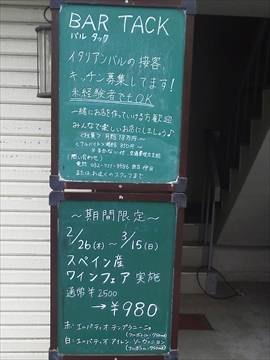 BAR TACK
バル タック
イタリアンバルの接客、
キッチン募集してます!
未経験者でもOK
一緒にお店を作っていける方歓迎
みんなで楽しいお店にしましょう♪
月給 18万円〜
〜期間限定〜
2/26(木)〜3/15(日)
スペイン産
ワインフェア 実施
通常¥2500
→¥980
赤:エパティオ テンプラニーニョ
(フルボトル・グラスok)
白:エパティオ アイレン・ソーヴィニヨン
(フルボトル・グラスok)